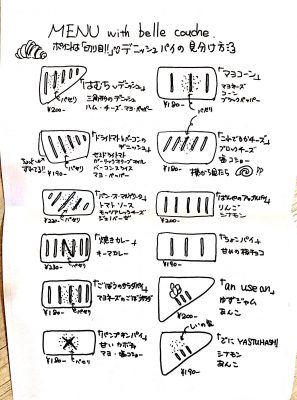 MENU with belle couche.
ポイントは「切り目」!? デニッシュパイの見分け方
「はむちゃデニッシュ」
三角形のデニッシュ
ハム・チーズ・マヨ・ペッパー
パセリ
¥200-
「マヨコーン」
マヨネーズ
コーン
ブラックペッパー
パセリ
¥180-
「ドライトマトとベーコンのデニッシュ」
セミドライトマト
ガーリックオリーブオイル
ベーコンスライス
マヨ・ペッパー
パセリ
¥190-
チーズ」
ブロックチーズ
塩コショー
横から見たら
¥180-
トマトソース
モッツァレラチーズ
ジェノベーゼ
パセリ
¥220-
りんご
シナモン
¥180-
「焼きカレー」
キーマカレー
パセリ
¥230-
「ちょこパイ」
甘めの板チョコ
¥180-
「ごぼうのサラダパイ」
マヨネーズのごぼうサラダ
パセリ
¥180-
「an use an」
ゆずジャム
あんこ
¥200-
「パンプキンパイ」
甘いカボチャ
マヨ・塩コショー
パセリ
¥180-
YASTUHASHI」
シナモン
あんこ
¥190-